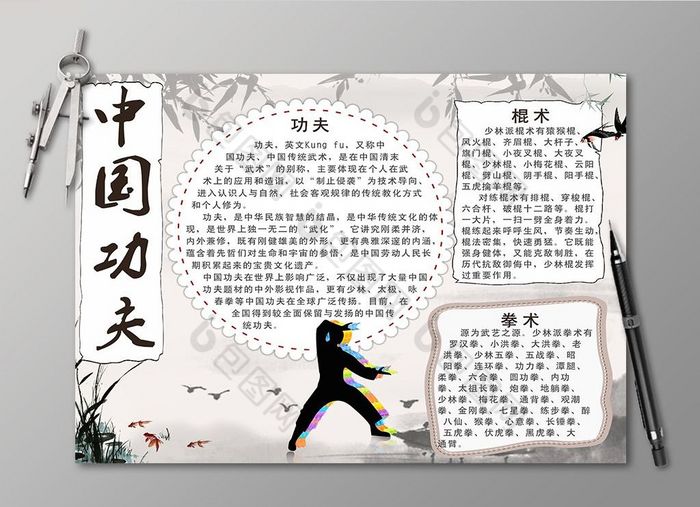 中国功夫
功夫
功夫，英文Kung fu，又称中
国功夫、中国传统武术，是在中国清末
关于“武术”的别称，主要体现在个人在武
术上的应用和造诣，以“制止侵袭”为技术导向、
进入认识人与自然、社会客观规律的传统教化方式
和个人修为。
功夫，是中华民族智慧的结晶，是中华传统文化的体
现，是世界上独一无二的“武化”，它讲究刚柔并济，
内外兼修，既有刚健雄美的外形，更有典雅深邃的内涵，
蕴含着先哲们对生命和宇宙的参悟，是中国劳动人民长
期积累起来的宝贵文化遗产。
中国功夫在世界上影响广泛，不仅出现了大量中国
功夫题材的中外影视作品，更有少林、太极、咏
春拳等中国功夫在全球广泛传扬。目前，在
全国得到较全面保留与发扬的中国传
统功夫。
棍术
少林派棍术有猿猴棍、
风火棍、齐眉棍、大杆子、
旗门棍、小夜叉棍、大夜叉
棍、少林棍、小梅花棍、云阳
棍、劈山棍、阴手棍、阳手棍、
五虎擒羊棍等。
对练棍术有排棍、穿梭棍、
六合杆、破棍十二路等。棍打
一大片，一扫一劈全身着力。
棍练起来呼呼生风，节奏生动
棍法密集，快速勇猛。它既能
强身健体，又能克敌制胜，在
历代抗敌御侮中，少林棍发挥
过重要作用。
拳术
源为武艺之源。少林派拳术有
罗汉拳、小洪拳、大洪拳、老
洪拳、少林五拳、五战拳、昭
阳拳、连环拳、功力拳、潭腿、
柔拳、六合拳、圆功拳、内功
拳、太祖长拳、炮拳、地躺拳、
少林拳、梅花拳、通背拳、观潮
拳、金刚拳、七星拳、练步拳、醉
八仙、猴拳、心意拳、长锤拳、
五虎拳、伏虎拳、黑虎拳、大
通臂。